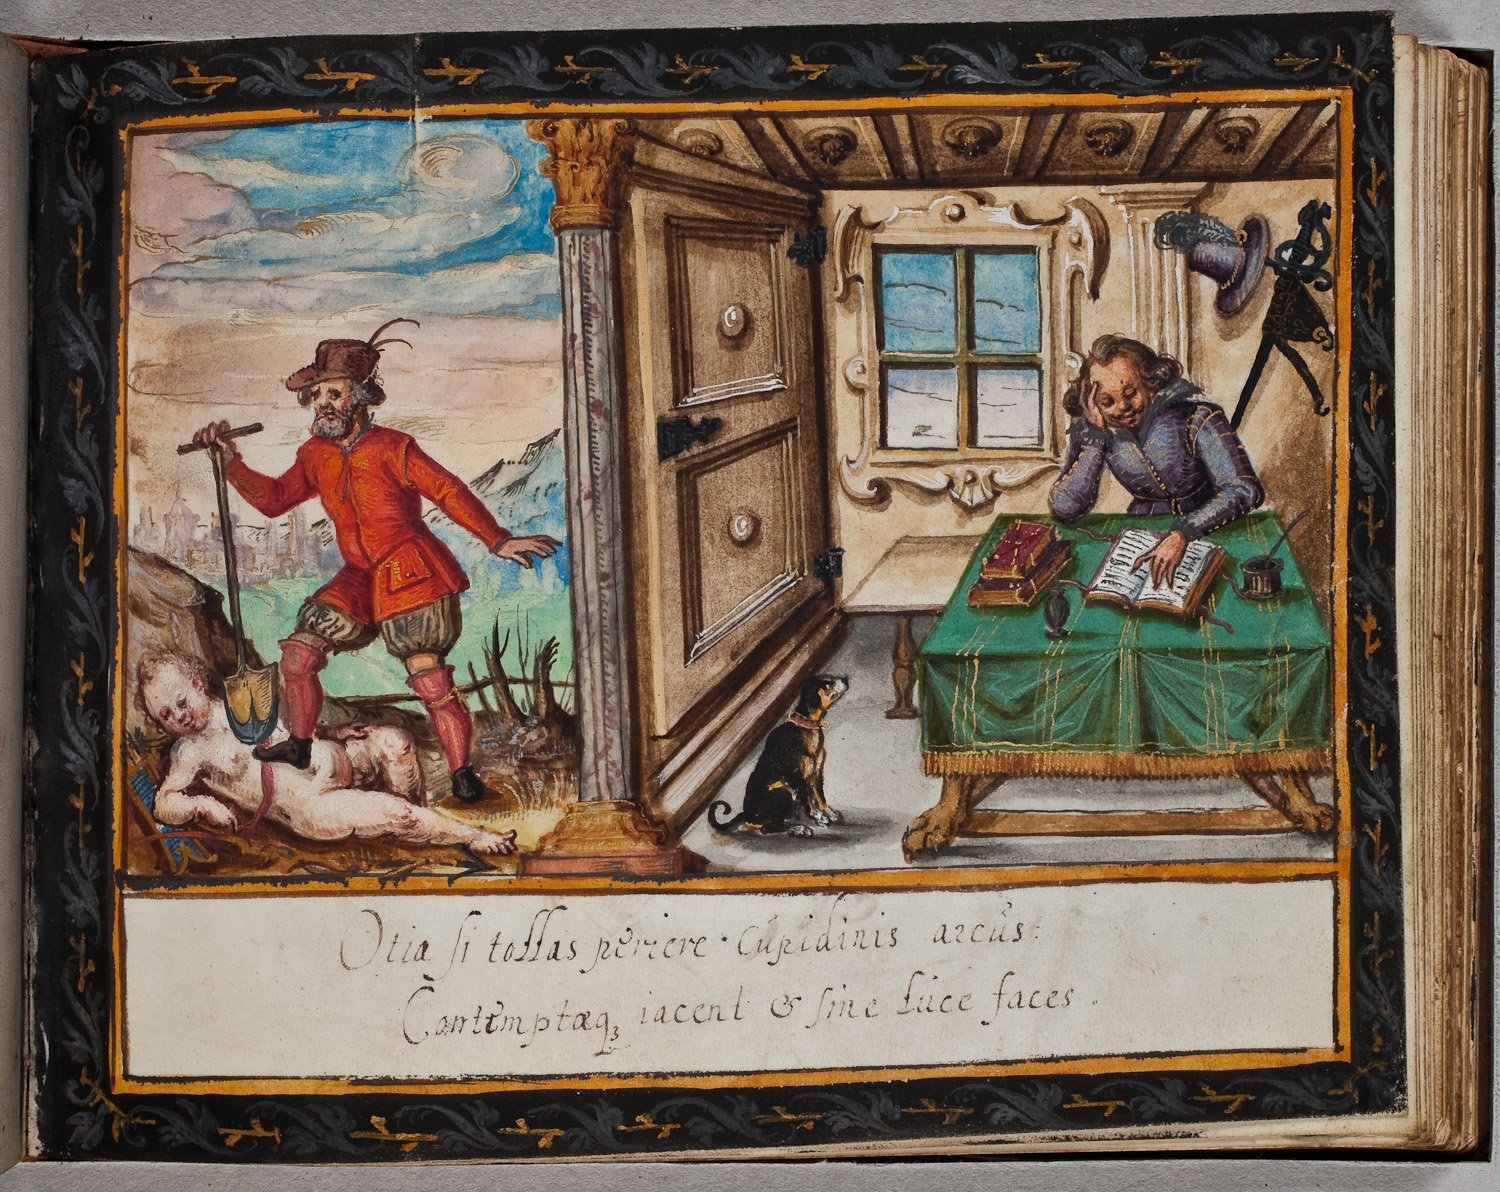 Otia si tollas periere Cupidinis arcus:
Contemptæq3 iacent & sine luce faces.